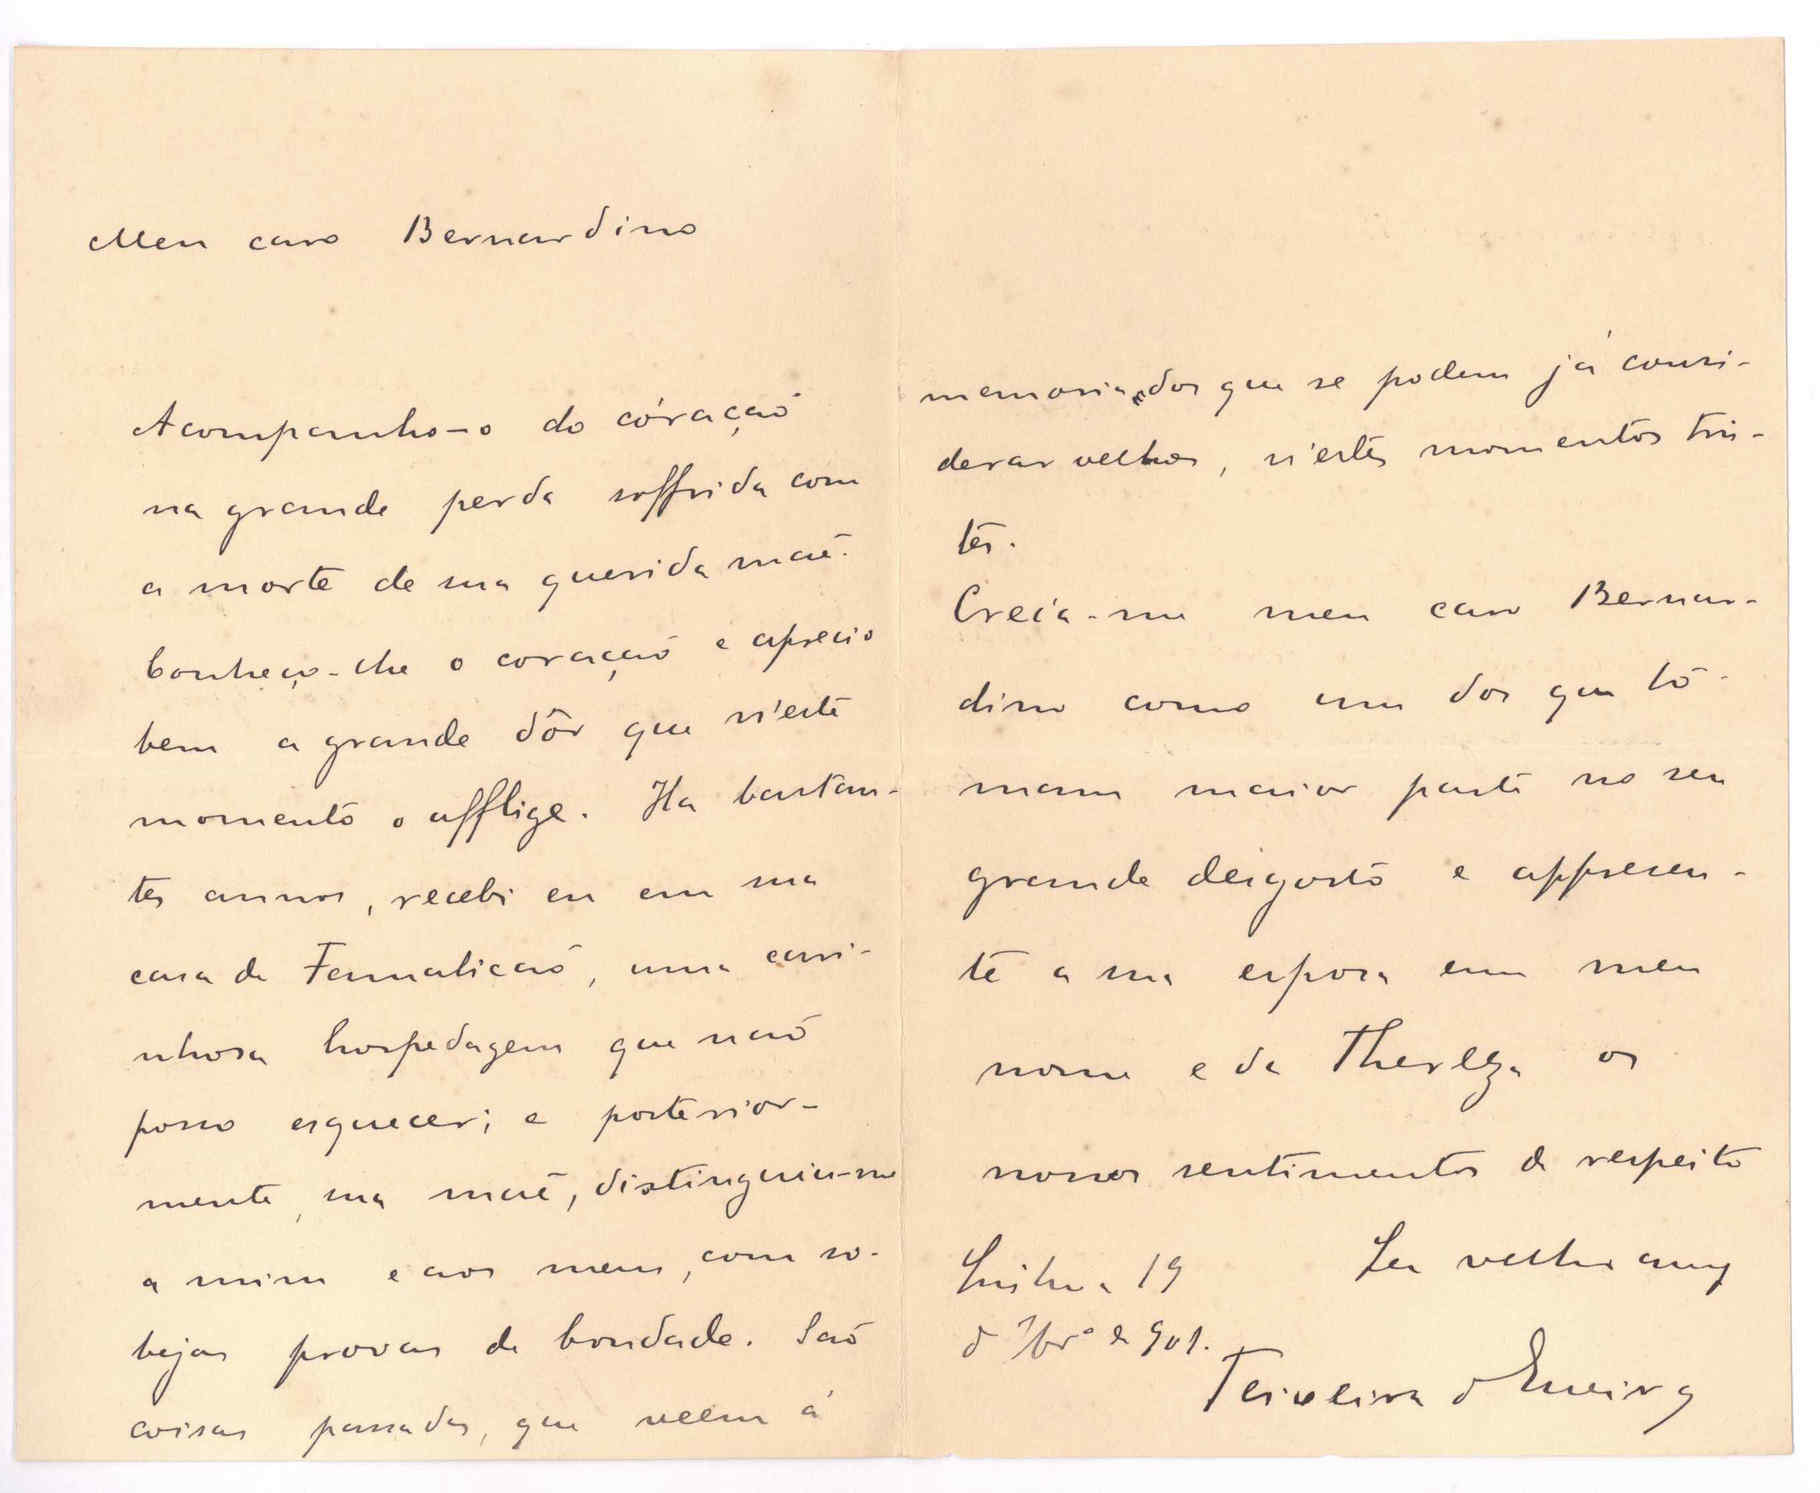 Meu caro Bernardino
Acompanho-o do coração
na grande perda soffrida com
a morte de sua querida mãe.
Conheço-lhe o coração e aprecio
bem a grande dôr que n'este
momento o afflige. Ha bastan-
tes annos, recebi eu em sua
casa de Famalicão, uma cari-
nhosa hospedagem que não
posso esquecer; e posterior-
mente, sua mãe, distinguiu-me
a mim e aos meus, com so-
bejas provas de bondade. São
coisas passadas, que veem á
memoria dos que se podem já consi-
derar velhos, n'estes momentos tris-
tes.
Creia-me meu caro Bernar-
dino como um dos que to-
mam maior parte no seu
grande desgosto e appresen-
te a sua esposa em meu
nome e da Thereza os
nossos sentimentos de respeito
Seu velho amg
19
d 7brº de 901.
Teixeira d